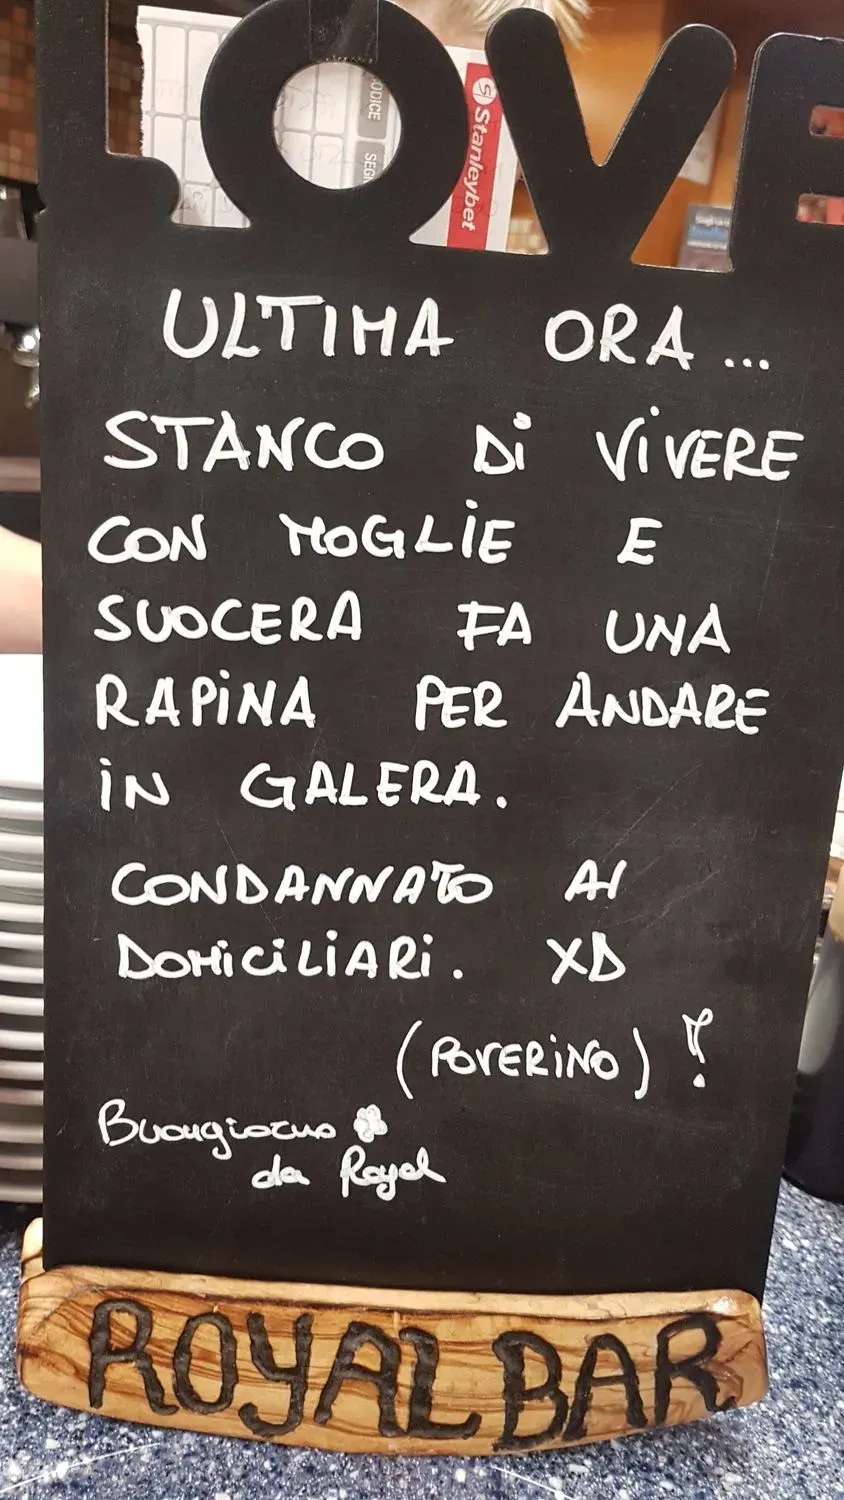 LOVE
CODICE
SEGN
Stanleybet
ULTIMA ORA...
STANCO Di ViVERE
CON MOGLiE E
SUOCERA FA UNA
RAPiNA PER ANDARE
iN GALERA.
CONDANNATO AI
DOMiCiLiARi. XD
(POVERINO)!
Buongiorno
da Royal
ROYAL BAR